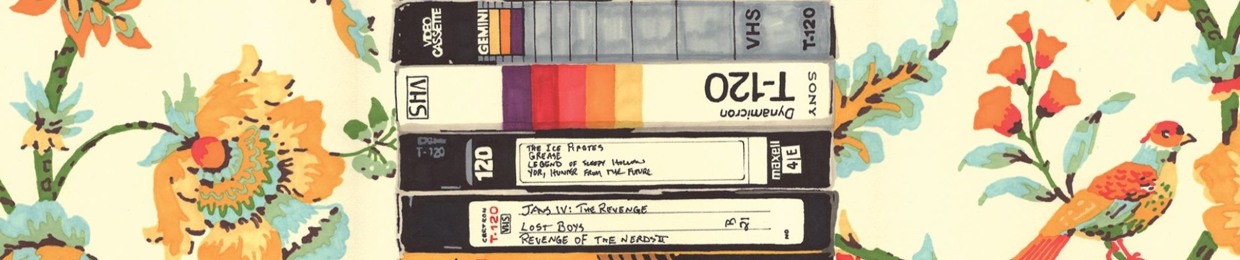 VIDEO
CASSETTE
GEMINI
VHS
T-120
VHS
Dynamicron
T-120
SONY
T-120
120
THE ICE PIRATES
GREASE
LEGEND OF SLEEPY HOLLOW
YOR, HUNTER FROM THE FUTURE
maxell
4|E
T-120
VHS
JAWS IV: THE REVENGE
LOST BOYS
REVENGE OF THE NERDS II
B
21